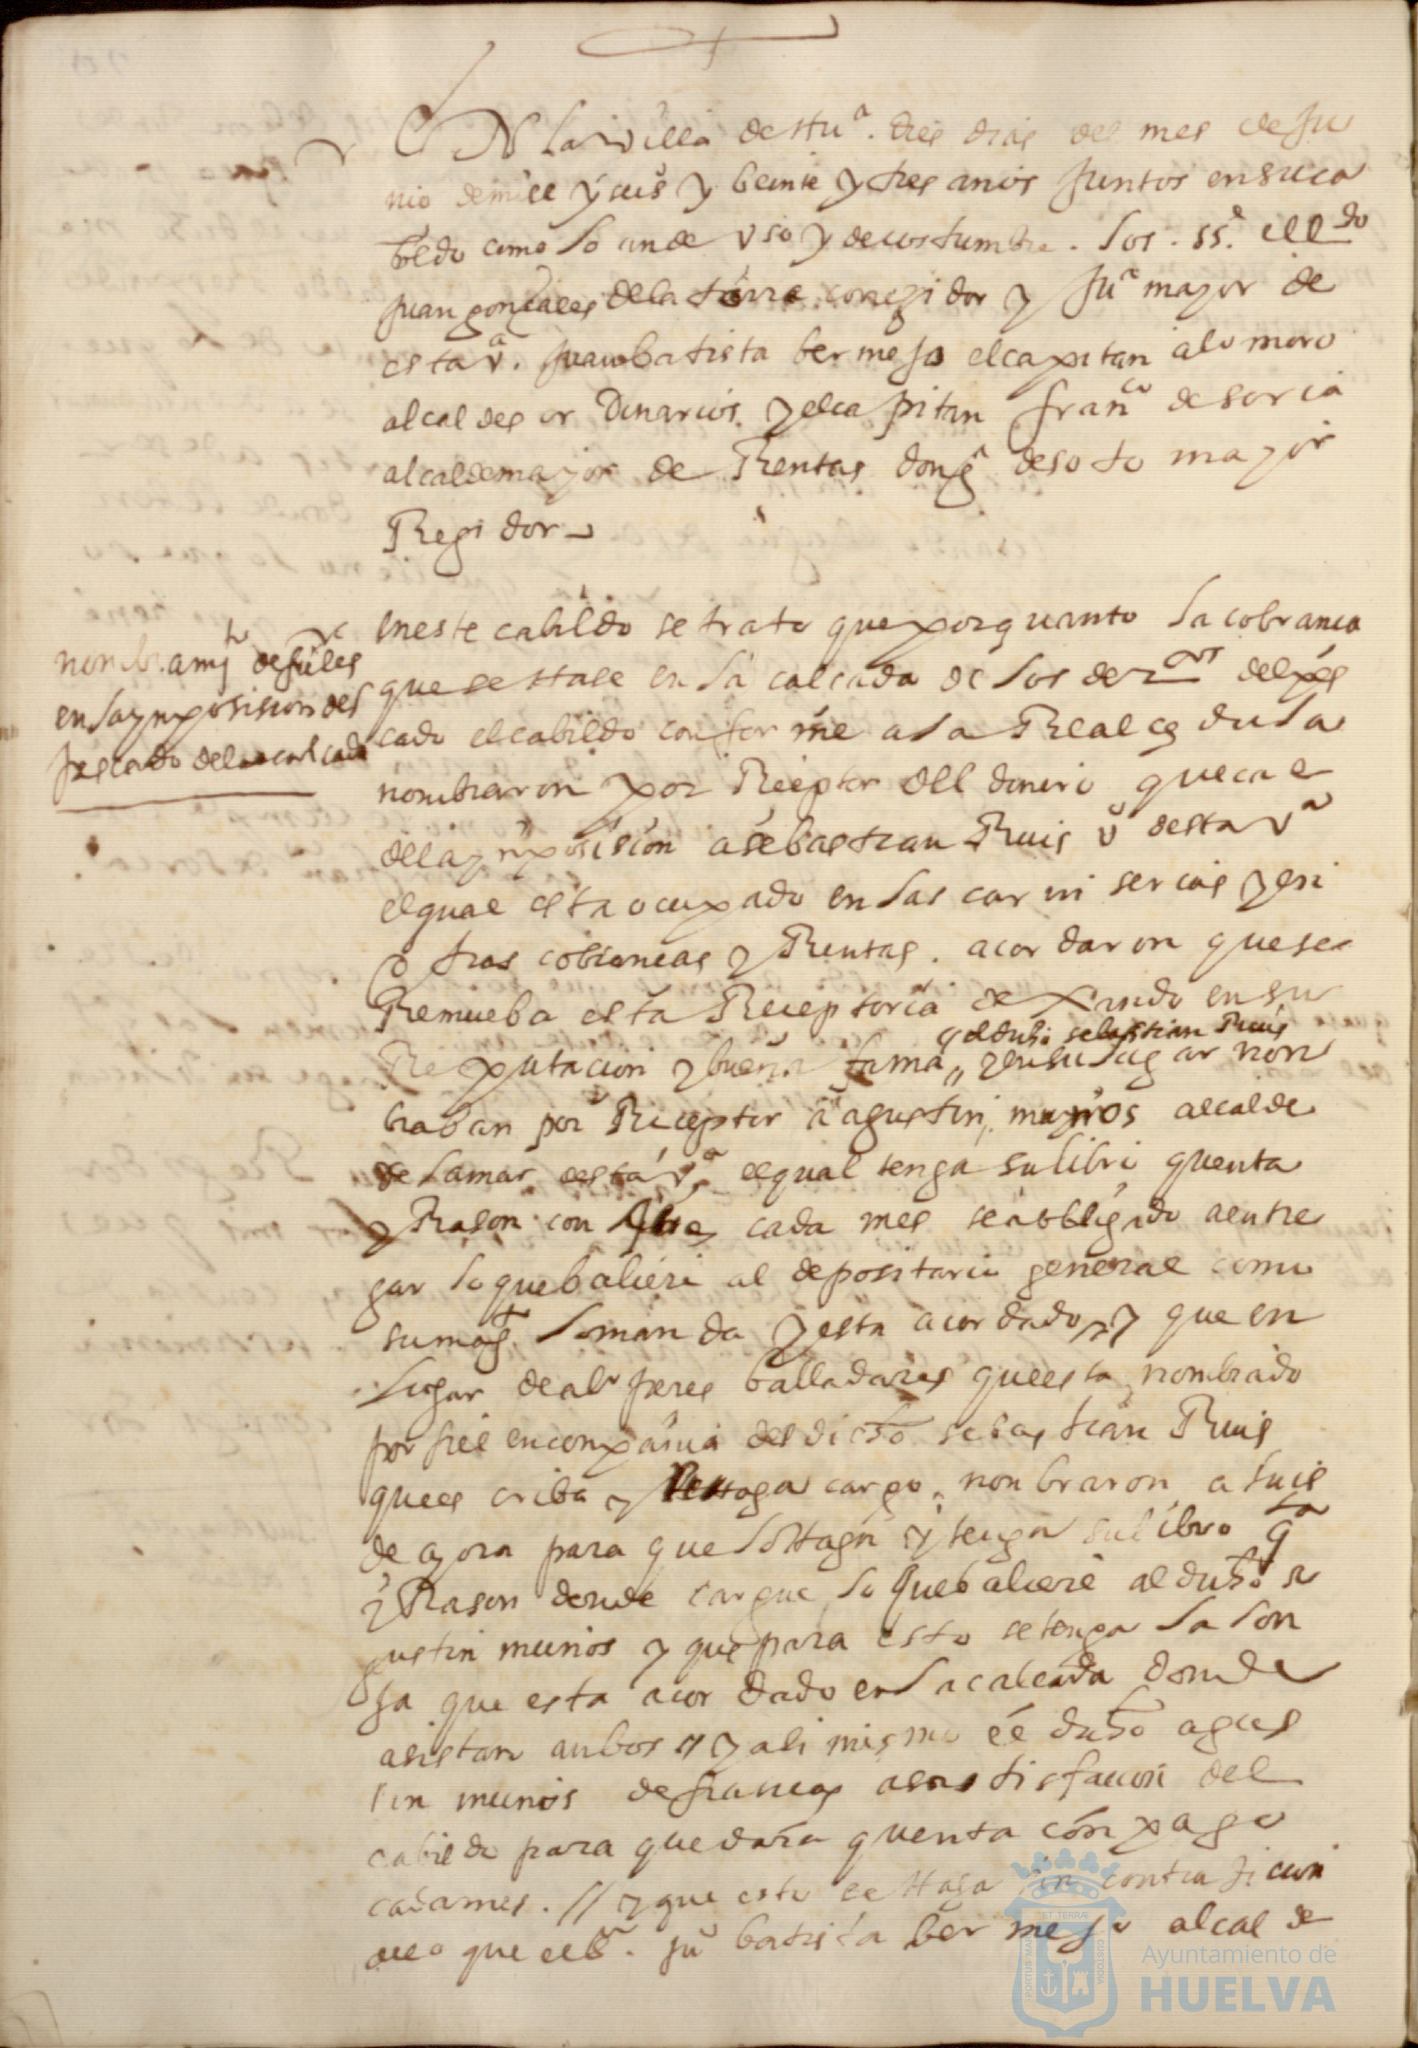 En la villa de Hu.ª tres dias del mes de Ju
nio de mill y seis y beinte y tres anios Juntos en su ca
bildo como lo an de uso y de costumbre. los. ss.es ill do
Juan gonçales de la torre corregidor y Ju.ª mayor de
esta v.ª Juan batista bermejo el capitan alº moro
alcaldes ordinarios. y el capitan fran.co de soria
alcalde mayor de Rentas don g.ª de soto mayor
Regidor
nonbramj.to de fieles
en la ynposision del
pescado de la calcada
en este cabildo se trato que por quanto la cobranca
que se Hase en la calcada de los der.os del pes
cado el cabildo conforme a la Real cedula
nombraron por Reseptor dell dinero que cae
de la ynposision a sebastian Ruis vº desta v.ª
el qual esta ocupado en las carniserias y en
otras cobrancas y Rentas. acordaron que se
Remueba esta Receptoria dexando en su
Reputacion y buena fama al dicho sebastian Ruis
y en su lugar non
braban por Receptor a agustin munos alcalde
de la mar desta v.ª el qual tenga su libro quenta
y Rason con que cada mes sea obligado a entre
gar lo que baliere al depositario general como
su mag.t lo manda y esta acordado y que en
lugar de alº peres balladares que esta nombrado
por fiel en conpania del dicho sebastian Ruis
que escriba y Haga cargo. nonbraron a luis
de ayora para que lo Haga y tenga su libro q.ta
y Rason donde cargue lo que baliere al dicho a
gustin munios y que para esto se tenga la lon
ja que esta acordado en la calcada donde
asistan anbos y ali mismo el dicho agus
tin munios de fiancas a satisfacion del
cabildo para que dara quenta con pago
cada mes. // y que esto se Haga sin contradicion
que el s.r juº batista bermejo alcalde
Ayuntamiento de
HUELVA